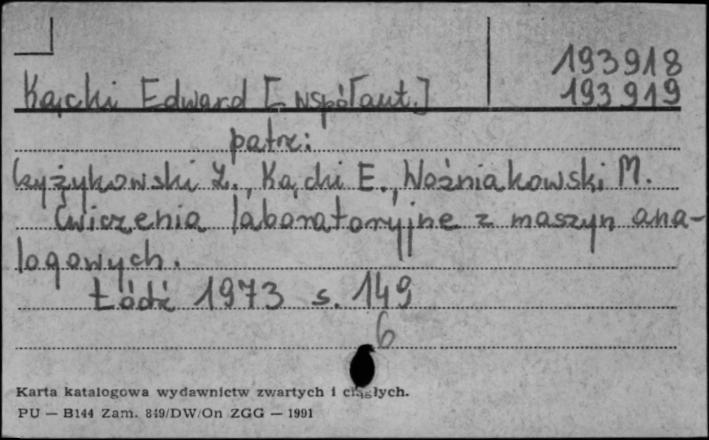 193918
Kącki Edward [współaut.] 193919
patrz:
Łyżykowski Z., Kącki E., Woźniakowski M.
Ćwiczenia laboratoryjne z maszyn ana-
logowych.
Łódź 1973 s. 149
6
Karta katalogowa wydawnictw zwartych i ciągłych.
PU — B144 Zam. 849/DW/On ZGG — 1991